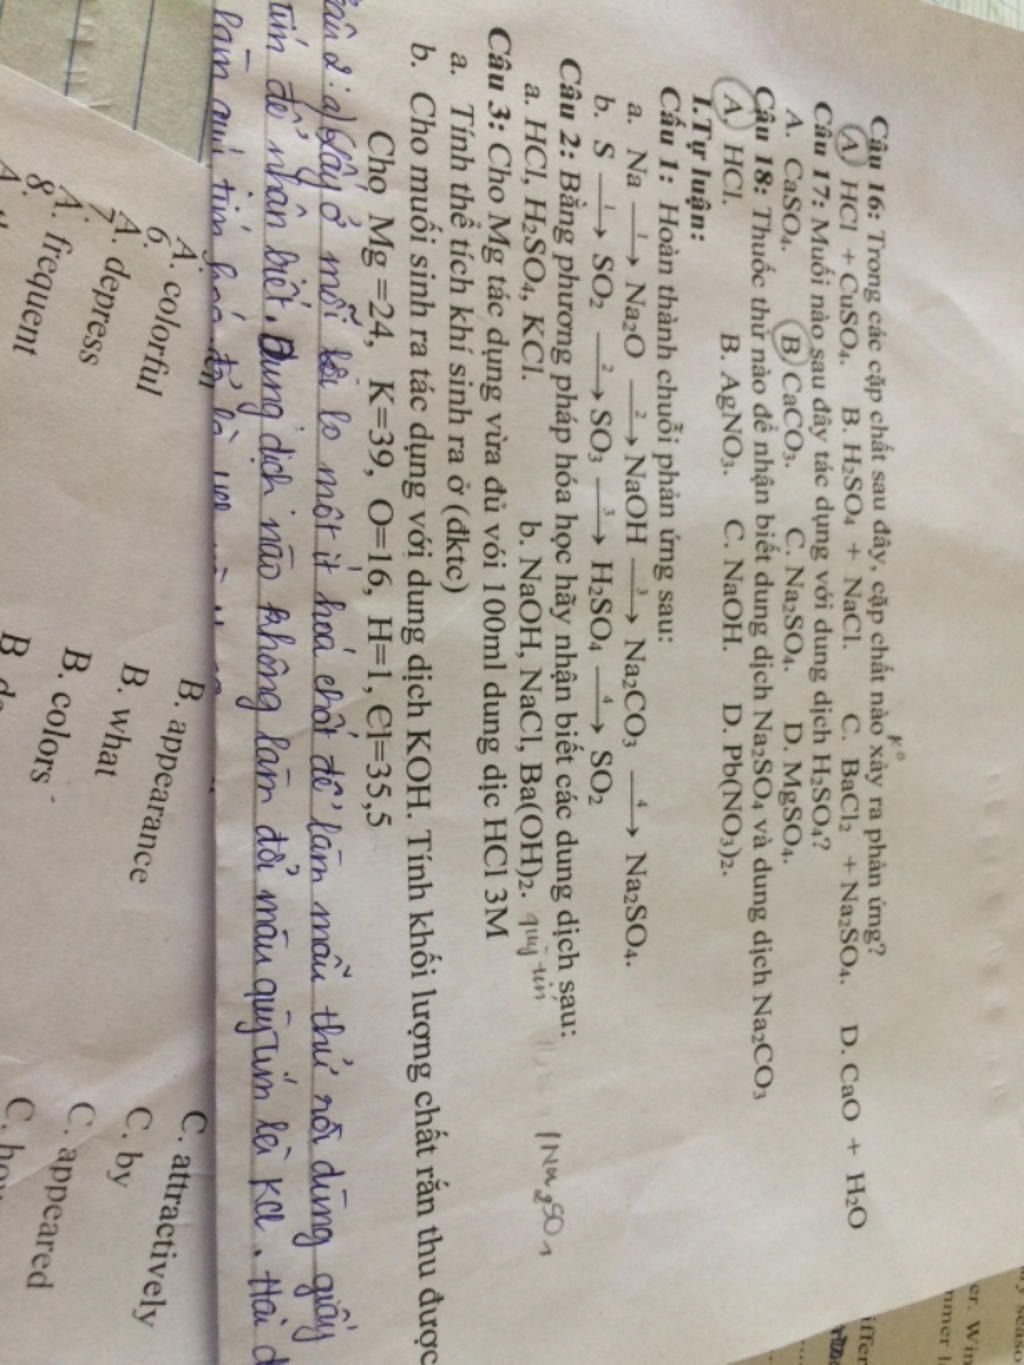 Câu 16: Trong các cặp chất sau đây, cặp chất nào xảy ra phản ứng?
k°
A. HCl + CuSO₄. B. H₂SO₄ + NaCl. C. BaCl₂ + Na₂SO₄. D. CaO + H₂O
Câu 17: Muối nào sau đây tác dụng với dung dịch H₂SO₄?
A. CaSO₄. B. CaCO₃. C. Na₂SO₄. D. MgSO₄.
Câu 18: Thuốc thử nào để nhận biết dung dịch Na₂SO₄ và dung dịch Na₂CO₃
A. HCl. B. AgNO₃. C. NaOH. D. Pb(NO₃)₂.
I.Tự luận:
Cấu 1: Hoàn thành chuỗi phản ứng sau:
a. Na —1→ Na₂O —2→ NaOH —3→ Na₂CO₃ —4→ Na₂SO₄.
b. S —1→ SO₂ —2→ SO₃ —3→ H₂SO₄ —4→ SO₂
Câu 2: Bằng phương pháp hóa học hãy nhận biết các dung dịch sau:
a. HCl, H₂SO₄, KCl. b. NaOH, NaCl, Ba(OH)₂. quỳ tím
Na₂SO₄
Câu 3: Cho Mg tác dụng vừa đủ vói 100ml dung dịc HCl 3M
a. Tính thể tích khí sinh ra ở (đktc)
b. Cho muối sinh ra tác dụng với dung dịch KOH. Tính khối lượng chất rắn thu được
Cho Mg =24, K=39, O=16, H=1, Cl=35,5
câu 2: a) Lấy ở mỗi lo một ít hoá chất để làm mẫu thử rồi dùng giấy
tím để nhận biết. Dung dịch nào không làm đổi màu quỳ tím là KCl. Hai d
làm quỳ tím hoá đỏ là
A. colorful B. appearance C. attractively
6
A. depress B. what C. by
7
A. frequent B. colors C. appeared
8
A. B. C.